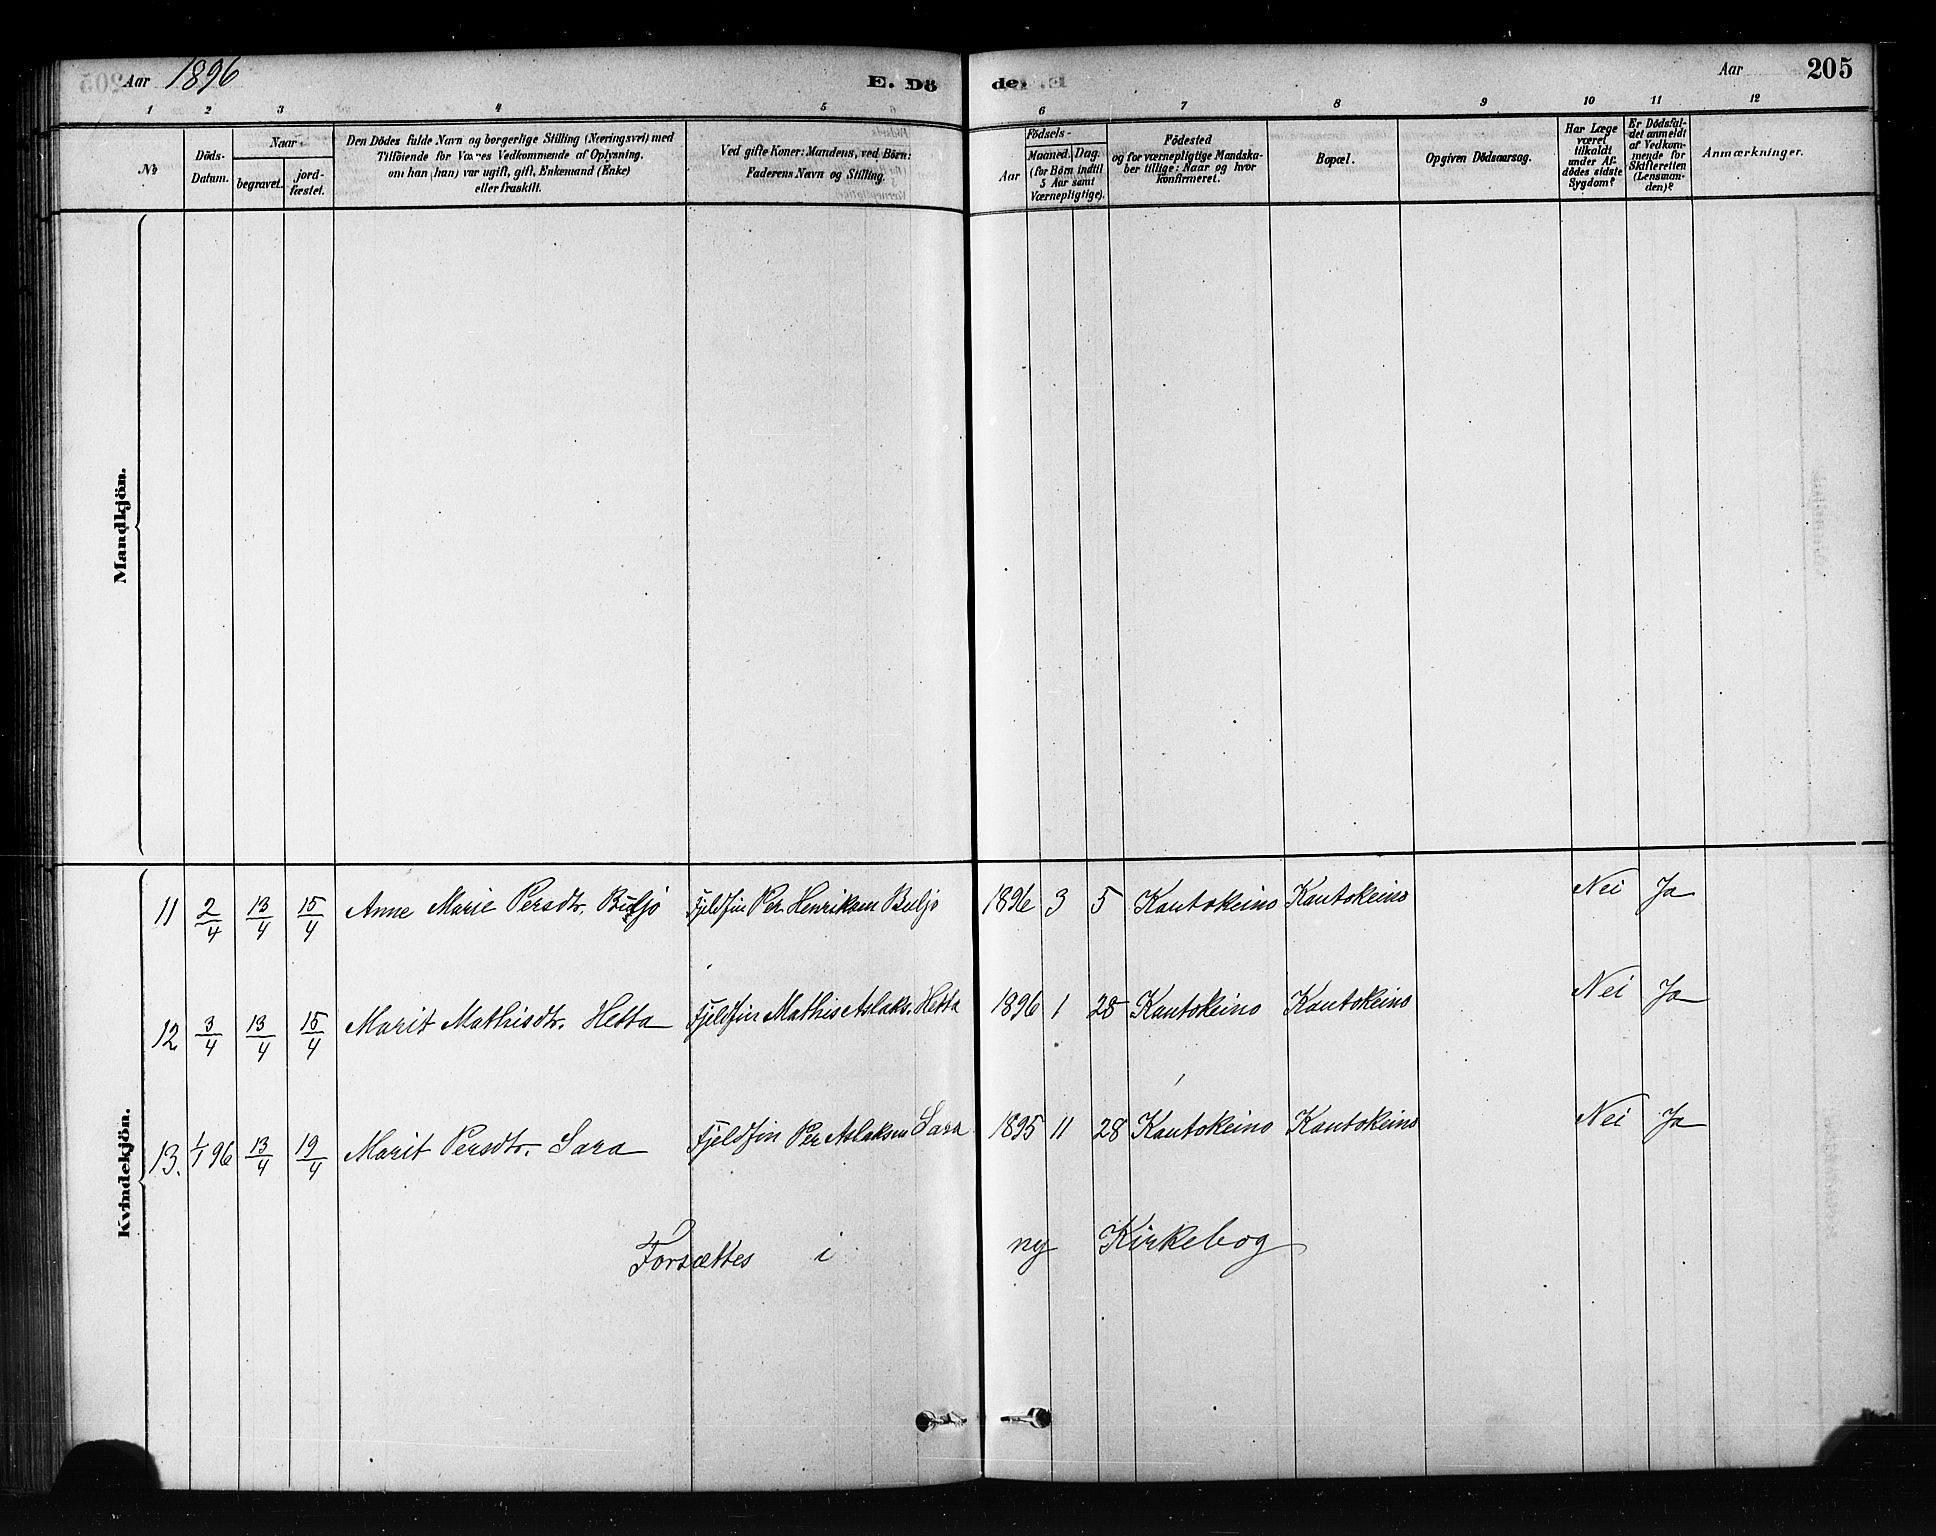 Aar 1896 E. Dö de. Aar 205
1 2 3 4 5 6 7 8 9 10 11 12
No
Döds-
Datum.
Naar
begravet.
jord-
fæstet.
Den Dödes fulde Navn og borgerlige Stilling (Næringsvei) med
Tilföiende for Voxnes Vedkommende af Oplysning,
om han (hun) var ugift, gift, Enkemand (Enke)
eller fraskilt.
Ved gifte Koner: Mandens, ved Börn:
Faderens Navn og Stilling.
Födsels-
Aar
Maaned.
Dag.
(for Börn indtil
5 Aar samt
Værnepligtige).
Födested
og for værnepligtige Mandska-
ber tillige: Naar og hvor
konfirmeret.
Bopæl.
Opgiven Dödsaarsag.
Har Læge
været
tilkaldt
under Af-
dödes sidste
Sygdom?
Er Dödsfal-
det anmeldt
af Vedkom-
mende for
Skifteretten
(Lensman-
den)?
Anmærkninger.
Mandkjön.
Kvindekjön.
11 2/4 13/4 15/4 Anne Marie Persdtr. Buljo Fjeldfin Per Henriksen Buljo 1896 3 5 Kautokeino Kautokeino Nei Ja
12 3/4 13/4 15/4 Marit Mathisdtr. Hetta Fjeldfin Mathis Aslaks. Hetta 1896 1 28 Kautokeino Kautokeino Nei Ja
13. 1/1 96 13/4 19/4 Marit Persdtr. Sara Fjeldfin Per Aslaksen Sara 1895 11 28 Kautokeino Kautokeino Nei Ja
Forsættes i ny Kirkebog